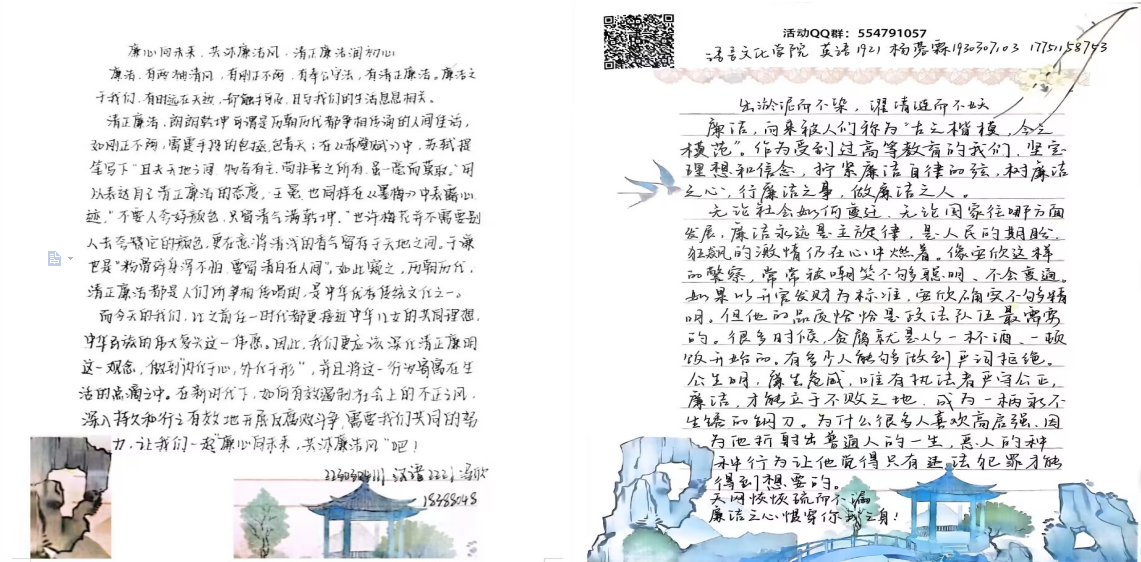 廉心向未来、共沐廉洁风，清正廉洁润初心
廉洁，有两袖清风，有刚正不阿，有奉公守法，有清正廉洁。廉洁之
于我们，有时远在天边，却触手可及，且与我们的生活息息相关。
清正廉洁，朗朗乾坤可谓是历朝历代都争相传诵的人间佳话，
如刚正不阿，需要手段的包拯，包青天；在《赤壁赋》中，苏轼提
笔写下“且夫天地之间，物各有主，苟非吾之所有，虽一毫而莫取。”可
以表达自己清正廉洁的态度，王冕也同样在《墨梅》中表露心
迹，“不要人夸好颜色，只留清气满乾坤。”也许梅花并不需要别
人去夸赞它的颜色，更在意将清浅的香气留存于天地之间。于谦
也是“粉骨碎身浑不怕，要留清白在人间”，如此窥之，历朝历代，
清正廉洁都是人们所争相传唱的，是中华优秀传统文化之一。
而今天的我们，比之前任一时代都更接近中华儿女的共同理想，
中华民族的伟大复兴这一伟愿。因此，我们更应该深化清正廉明
这一观念，做到“内化于心，外化于形”，并且将这一行为寓寓在生
活的点滴之中。在新时代下，如何有效遏制社会上的不正之风，
深入持久和行之有效地开展反腐败斗争，需要我们共同的努
力，让我们一起“廉心向未来，共沐廉洁风”吧！
汉语2221
活动QQ群：554791057
语言文化学院 英语1921 杨蓉霖1930307103 17751158753
出淤泥而不染，濯清涟而不妖
廉洁，向来被人们称为“古之楷模，今之
模范”。作为受到过高等教育的我们，坚定
理想和信念，拧紧廉洁自律的弦，树廉洁
之心，行廉洁之事，做廉洁之人。
无论社会如何变迁，无论国家往哪方面
发展，廉洁永远是主旋律，是人民的期盼，
狂飙的激情仍在心中燃着。像安欣这样
的警察，常常被嘲笑不够聪明、不会变通。
如果以升官发财为标准，安欣确实不够精
明。但他的品质恰恰是政法队伍最需要
的。很多时候，贪腐就是从一杯酒、一顿
饭开始的。有多少人能够做到严词拒绝。
公生明，廉生威，唯有执法者严守公正，
廉洁，才能立于不败之地，成为一柄永不
生锈的钢刀。为什么很多人喜欢高启强，因
为他折射出普通人的一生，恶人的种
种行为让他觉得只有违法犯罪才能
得到想要的。
天网恢恢疏而不漏
廉洁之心惧穿你我之身！